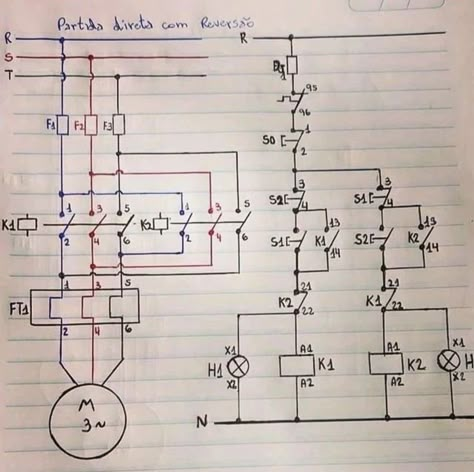 Partida direta com Reversão
R R
S
T
95
F1 F2 F3 1
96
S0 1
2
3 3
S2 S1
4 4
1 3 5 1 3 5
K1 K2
2 4 6 2 4 6
13 13
S1 K1 S2 K2
14 14
1 3 5
FT1
2 4 6
21 21
K2 K1
22 22
X1 A1 A1 X1
H1 K1 K2 H
X2 A2 A2 X2
M
3~
N